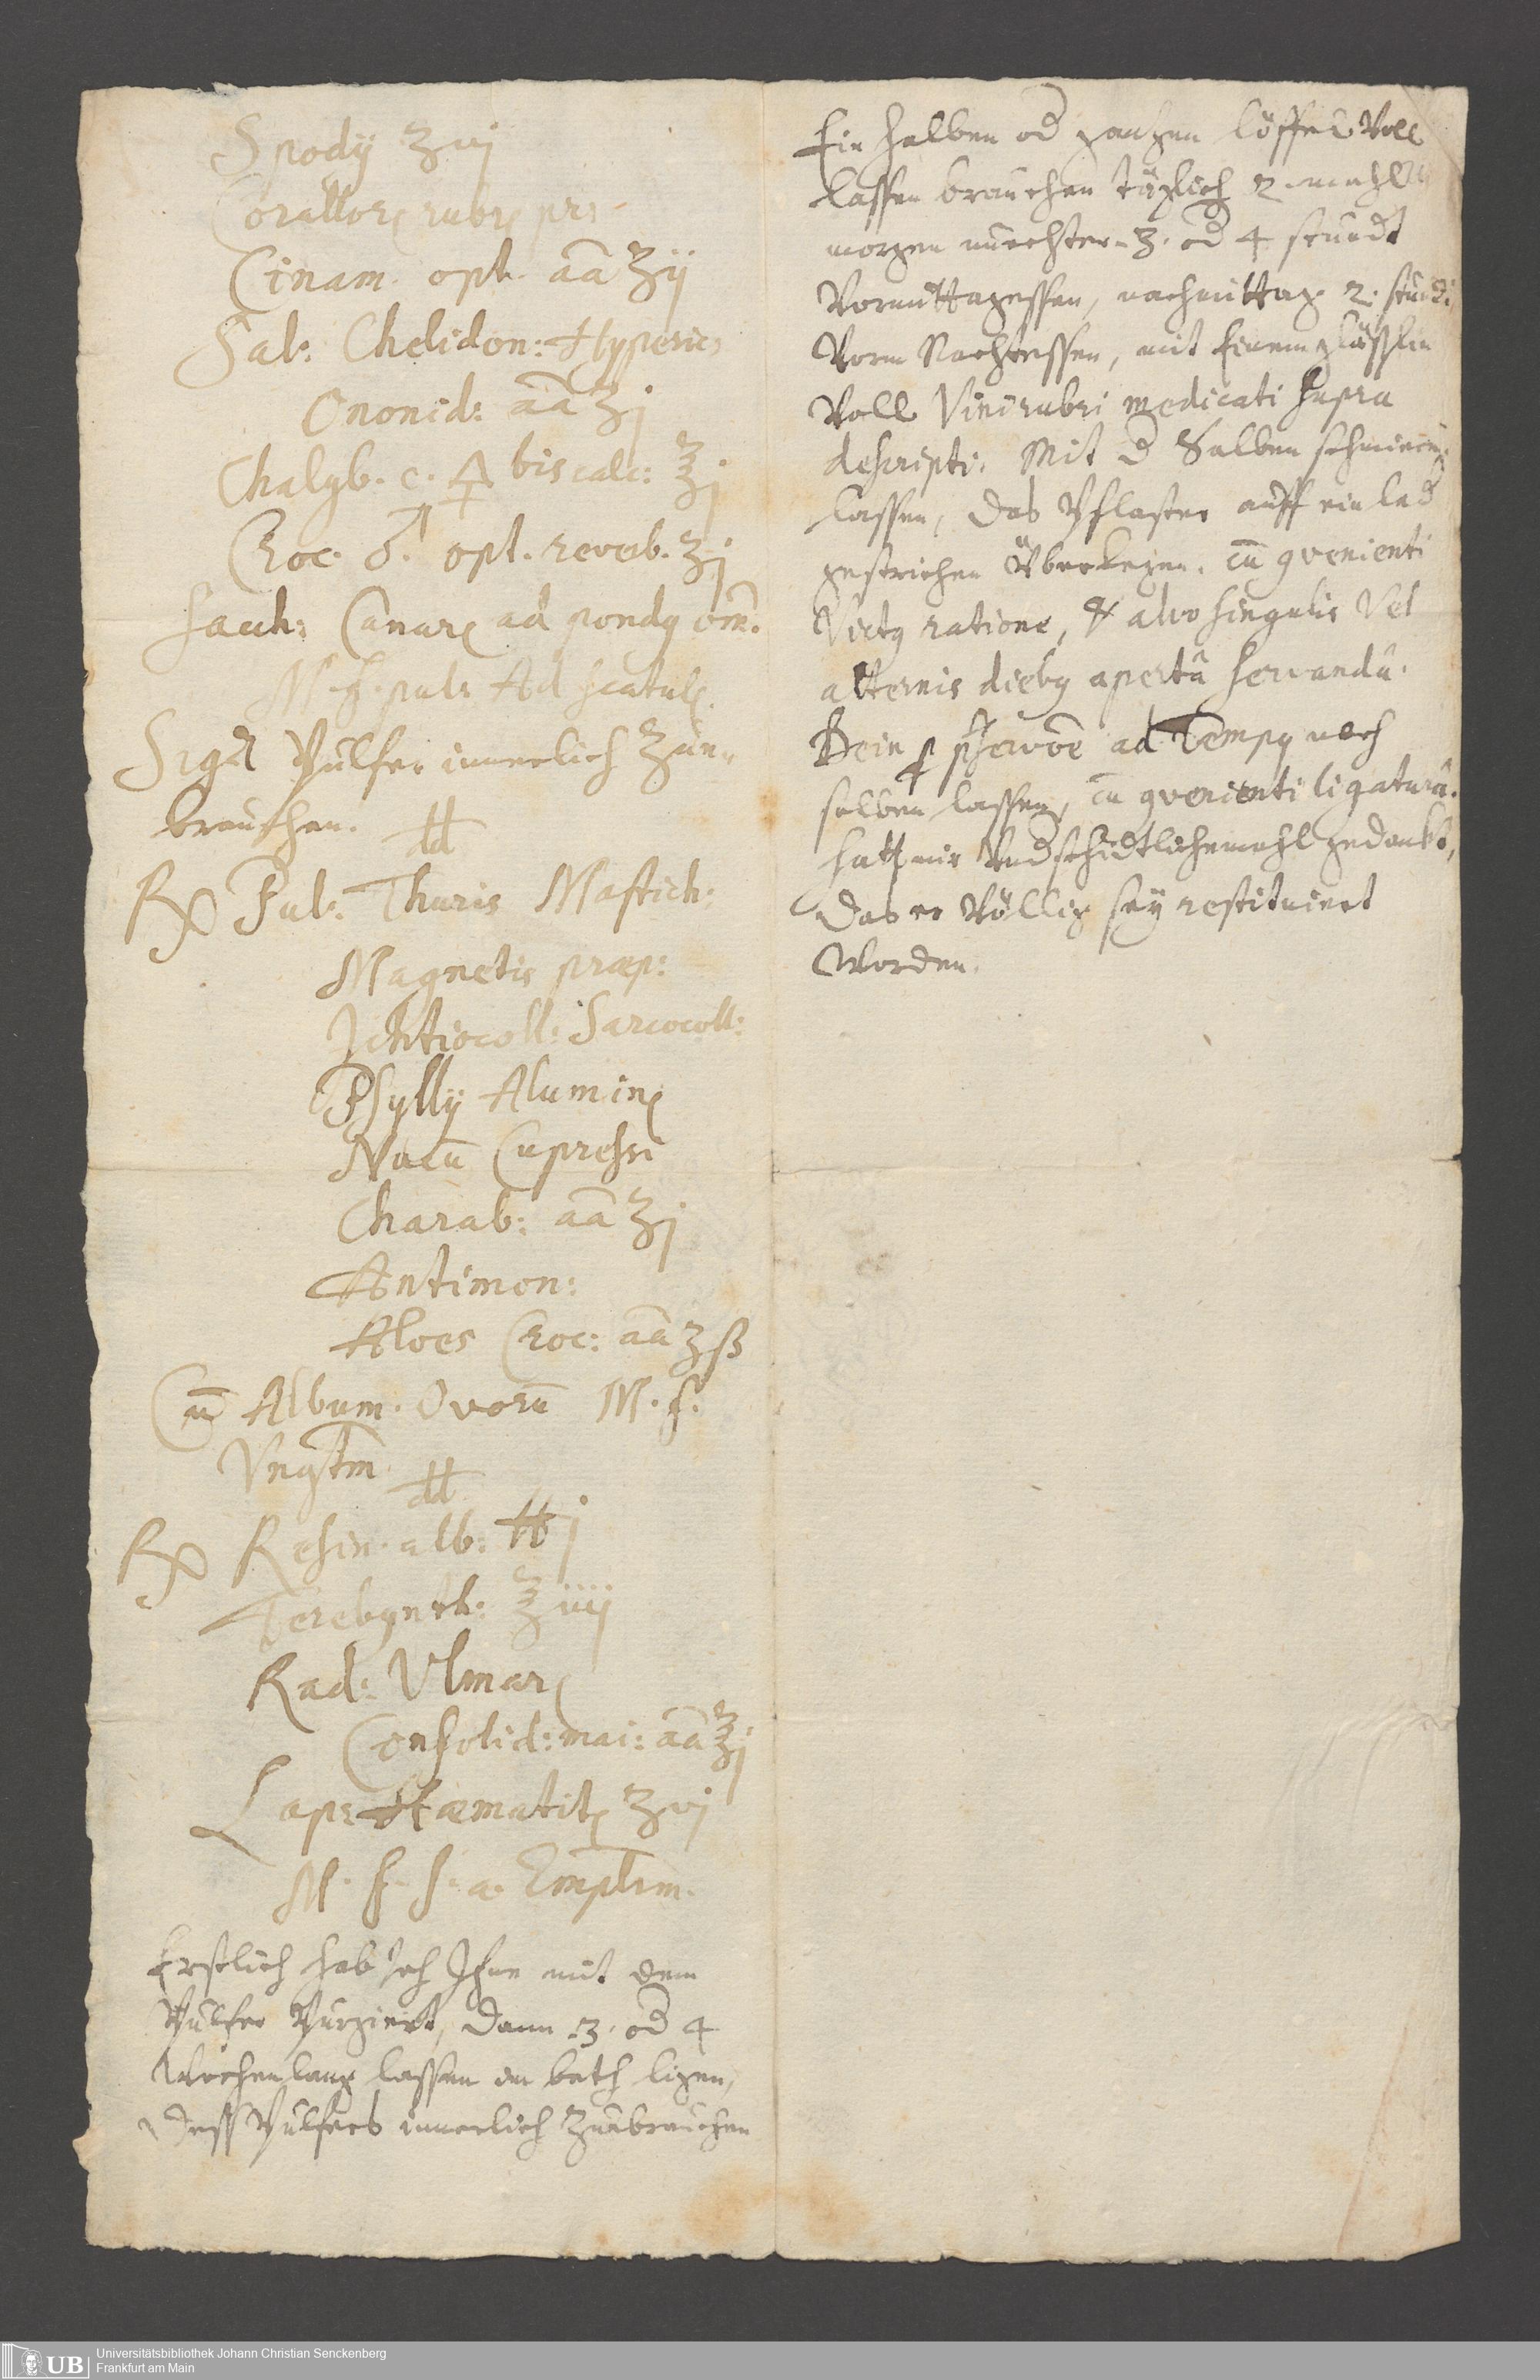 Spodÿ ʒvj
Corallorꝝ rubrꝝ pr:
Cinam. opt. aã ʒij
Sal: Chelidon: Hyperic:
Ononid: aã ʒj
Chalyb. c. 🜍 bis calc: ℥j
Croc. ♂. opt. reverb. ʒj
Sacch: Canarꝭ ad pondꝰ om̃.
M. f. pulꝰ Ad scatulꝭ.
Sigꝫ Pulfer innerlich Zue„
brauchen.
℞ Pul: Thuris Mastich:
Magnetis præp:
Ichtiocoll: Sarcocoll:
Psyllÿ Aluminꝭ
Nucū Cupressi
Charab: aã ʒj
Antimon:
Aloes Croc: aã ʒß
Cū Album. Ovorū M. f.
Vngt̃m.
℞ Resin. alb: ℔j
Terebynth: ℥iiij
Rad: Vlmarꝭ
Consolid: mai: aã ℥j
Lap: Hæmatitꝭ ʒvj
M. f. s. a. Emplr̃m.
Erstlich hab Ich Ihne mit dem
Pulfer Purgiert, dann 3. od 4
Wochen lang lassen im beth ligen,
Dess Pulfers innerlich Zuebrauchen
Ein halben od gantzen löffel Voll
lassen brauchen täglich 2. mahl
morgen nuechter 3. od 4 stundt
Vormittagessen, nachmittag 2. stundt
Vorm Nachtessen, mit Einem gläslin
Voll Vini rubri medicati supra
descripti. Mit d Salben schmieren
lassen, das Pflaster auff ein led
gestrichen Überlegen. cū ꝯvenienti
Victꝰ ratione, & alvo singulis Vel
alternis diebꝰ apertâ servandâ.
Dein ad Tempꝰ noch
salben lassen, cū ꝯvenienti ligaturâ.
hatt mir Undschidtlichemahl gedankt,
Das er Völlig seÿ restituiert
Worden.
Universitätsbibliothek Johann Christian Senckenberg
Frankfurt am Main
UB